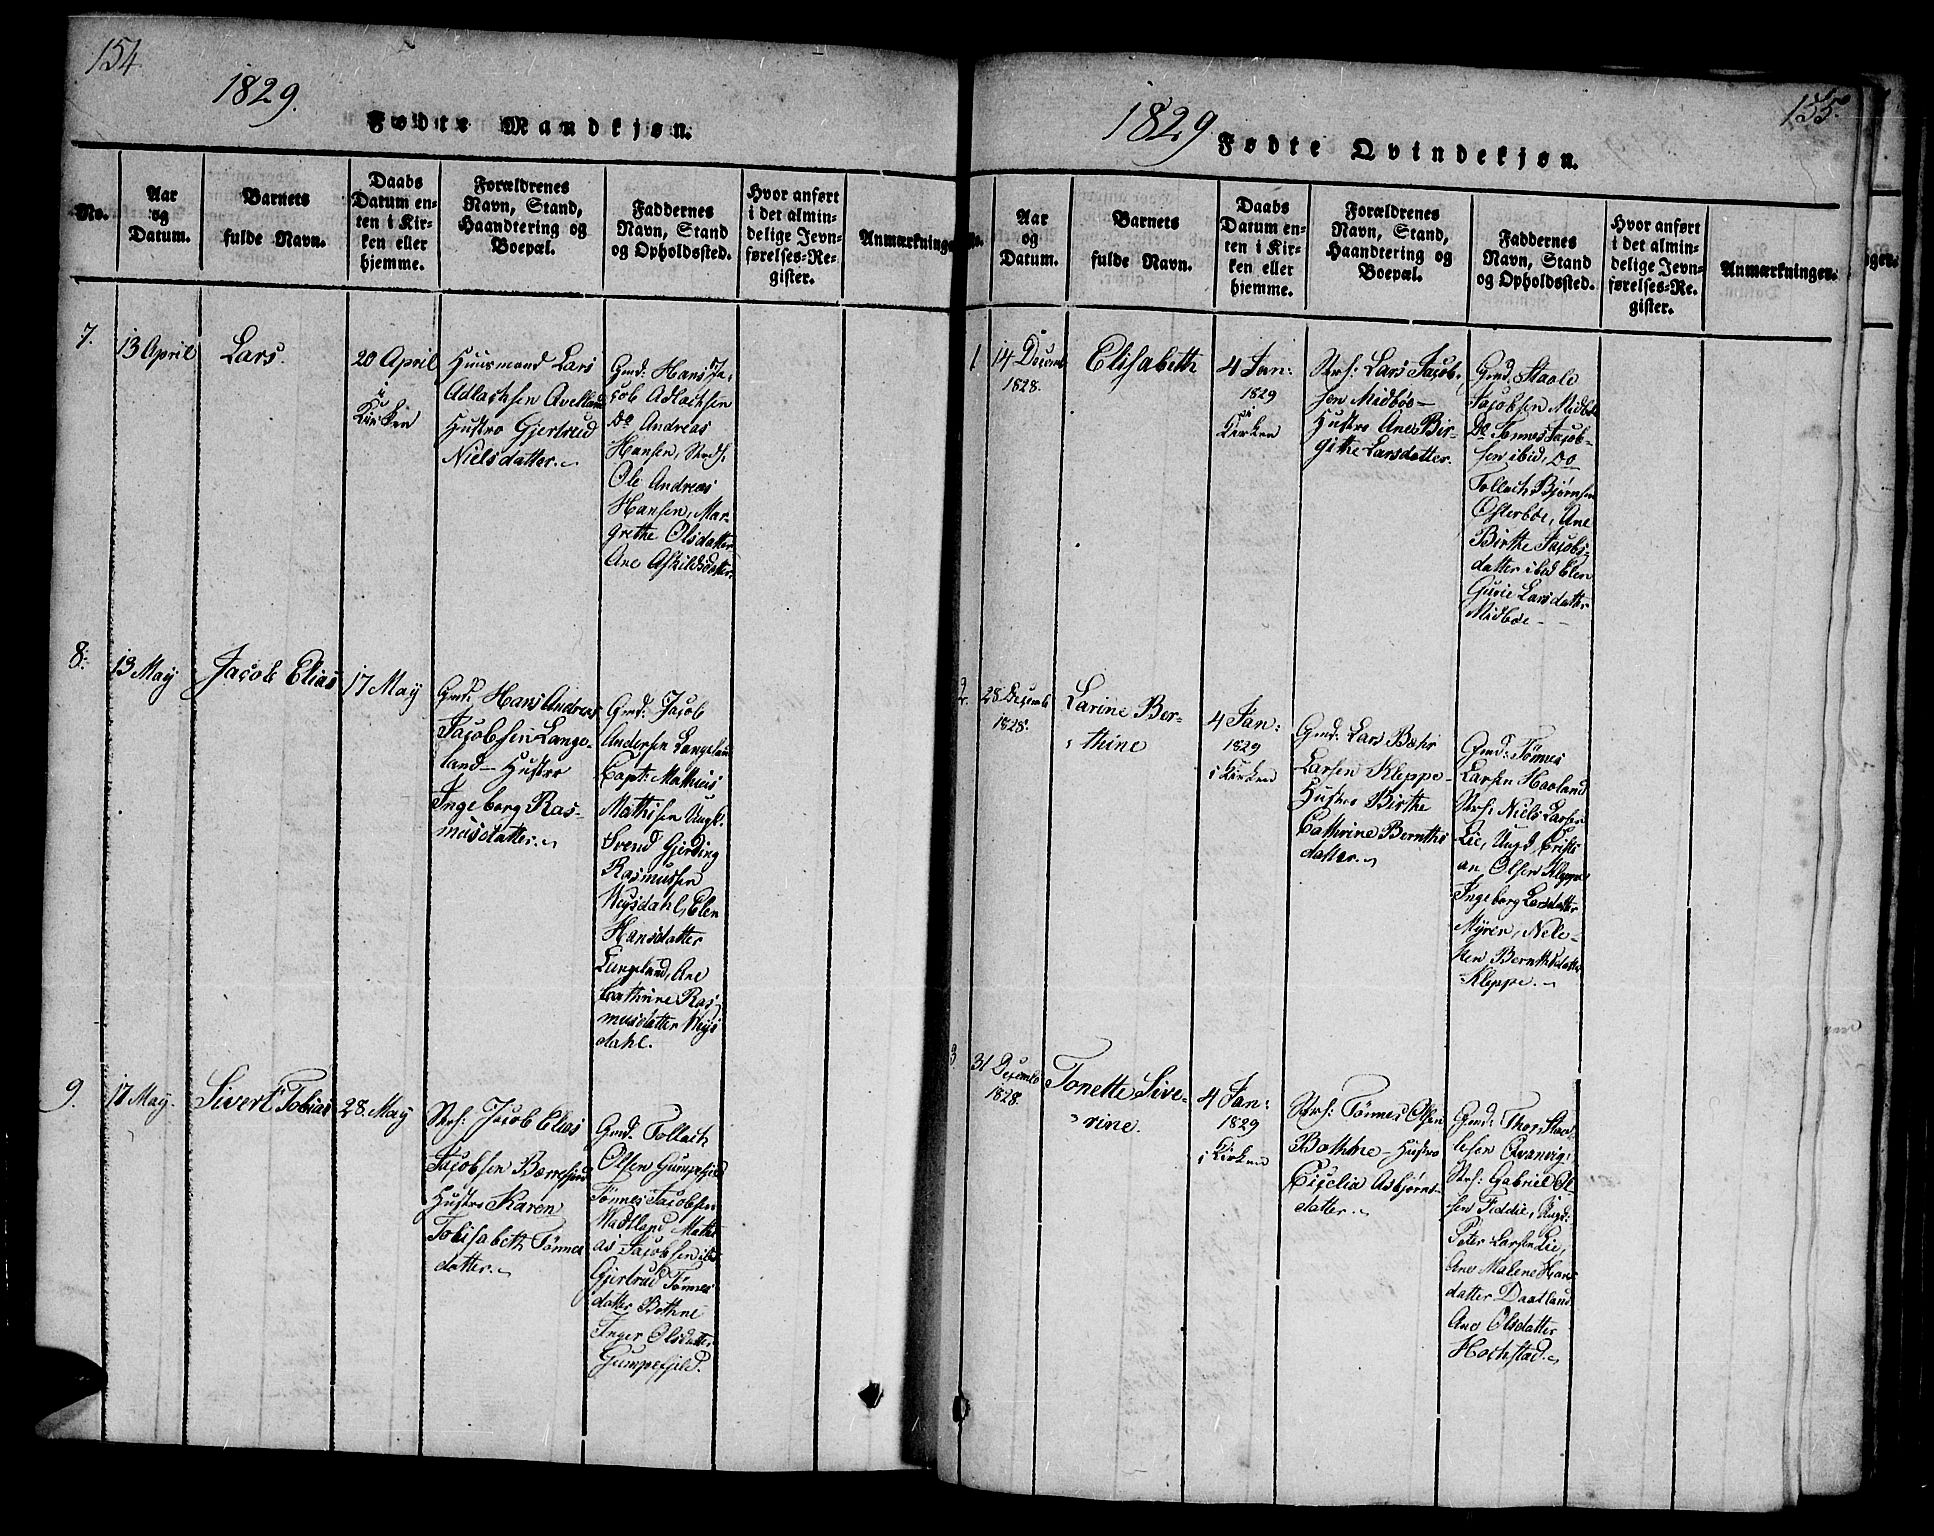 154
1829.
Fødte Mandkjøn.
No.
Aar
og
Datum.
Barnets
fulde Navn.
Daabs
Datum en-
ten i Kir-
ken eller
hjemme.
Forældrenes
Navn, Stand,
Haandtering og
Boepæl.
Faddernes
Navn, Stand
og Opholdssted.
Hvor anført
i det almin-
delige Jevn-
førelses-Re-
gister.
Anmærkninger
7.
13 April
Lars.
20 April
i
Kirken
Huusmand Lars
Adlachsen Avelland
Hustro Gjertrud
Nielsdatter.
Gmd: Hans Ja-
çob Adlachsen
Do Andreas
Hansen, Strds:
Ole Andreas
Hansen, Mar-
grethe Olsdatter
Ane Askildsdatter.
8.
13 May
Jaçob Elias
17 May
Gmd: Hans Andreas
Jaçobsen Lange-
land - Hustro
Ingeborg Ras-
musdatter.
Gmd: Jaçob
Andersen Langeland
Capt: Mathias
Mathisen Ungk:
Svend Gjerding
Rasmussen
Nysdahl, Elen
Hansdatter
Langeland, Ane
Cathrine Ras-
musdatter Nys
dahl.
9.
17 May.
Sivert Tobias
28 May
Strs: Jaçob Elias
Jaçobsen
Hustro Karen
Tobisabeth Tønnes
datter.
Gmd: Tollach
Olsen Gumpefjeld
Tønnes Jaçobsen
Wadtland Mathi
as Jaçobsen ibd
Gjertrud Tønnes
datter Bothne
Inger Olsdatter
Gumpefjeld.
155.
1829
Fødte Qvindekjøn.
No.
Aar
og
Datum.
Barnets
fulde Navn.
Daabs
Datum en-
ten i Kir-
ken eller
hjemme.
Forældrenes
Navn, Stand,
Haandtering og
Boepæl.
Faddernes
Navn, Stand
og Opholdssted.
Hvor anført
i det almin-
delige Jevn-
førelses-Re-
gister.
Anmærkninger.
1
14 Deçemb
1828.
Elisabeth
4 Jan:
1829
i
Kirken
Strs: Lars Jaçob-
sen Midbøe -
Hustro Ane Bir-
githe Larsdatter.
Gmd. Staale
Jaçobsen Midbøe
Do Tønnes Jaçob-
sen ibid, Do
Tollach Bjørnsen
Osterboe, Ane
Birthe Jaçobs-
datter ibid Elen
Gurie Larsdatter
Midbøe -
2.
28 Deçemb
1828.
Larine Ber-
thine
4 Jan:
1829
i Kirken
Gmd: Lars Boehr
Larsen Kleppe -
Hustro Birthe
Cathrine Bernths
datter.
Gmd: Tønnes
Larsen Haaland
Strs: Niels Larsen
Lie, Ungd Cristi
an Olsen Kleppe
Ingeborg Larsdatter
Myren,
Bernthsdatter
Kleppe.
3.
31 Deçemb
1828.
Tonette Sive-
rine
4 Jan:
1829
i Kirken
Strs: Tønnes Olsen
Bothne - Hustro
Ciçelia Asbjørns-
datter.
Gmd: Thor Staa-
lesen Qvanvig,
Strs: Gabriel Ol-
sen Feddie, Ungd:
Peter Larsen Lie,
Ane Malene Hans
datter Daatland
Ane Olsdatter
Hochstad.